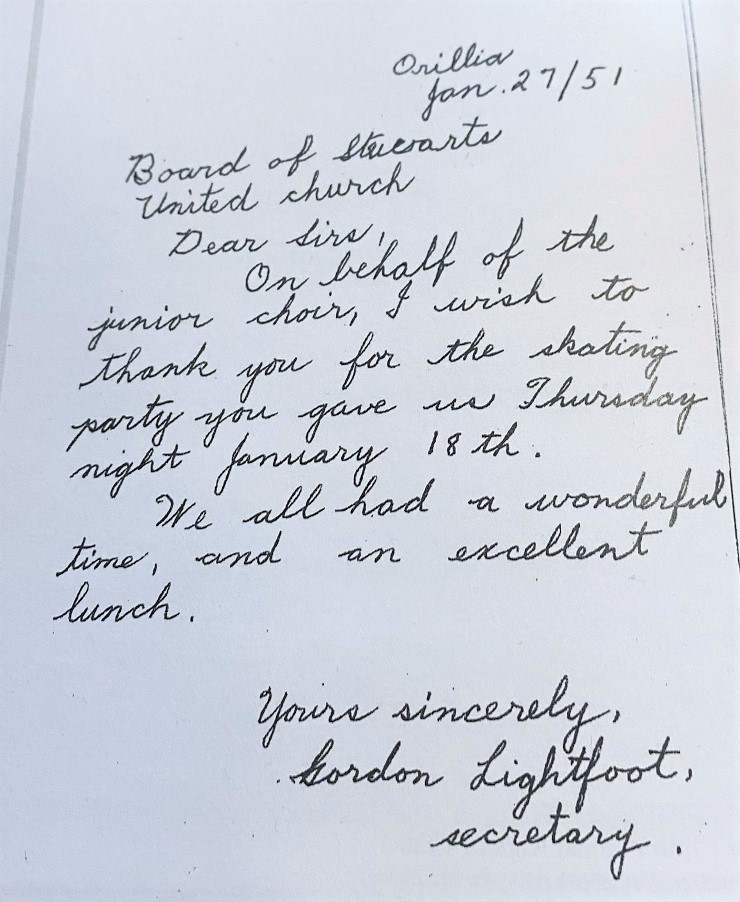 Orillia
Jan. 27/51
Board of Stuewarts
United church
Dear Sirs,
On behalf of the
junior choir, I wish to
thank you for the skating
party you gave us Thursday
night January 18 th.
We all had a wonderful
time, and an excellent
lunch.
Yours sincerely,
Gordon Lightfoot,
secretary.